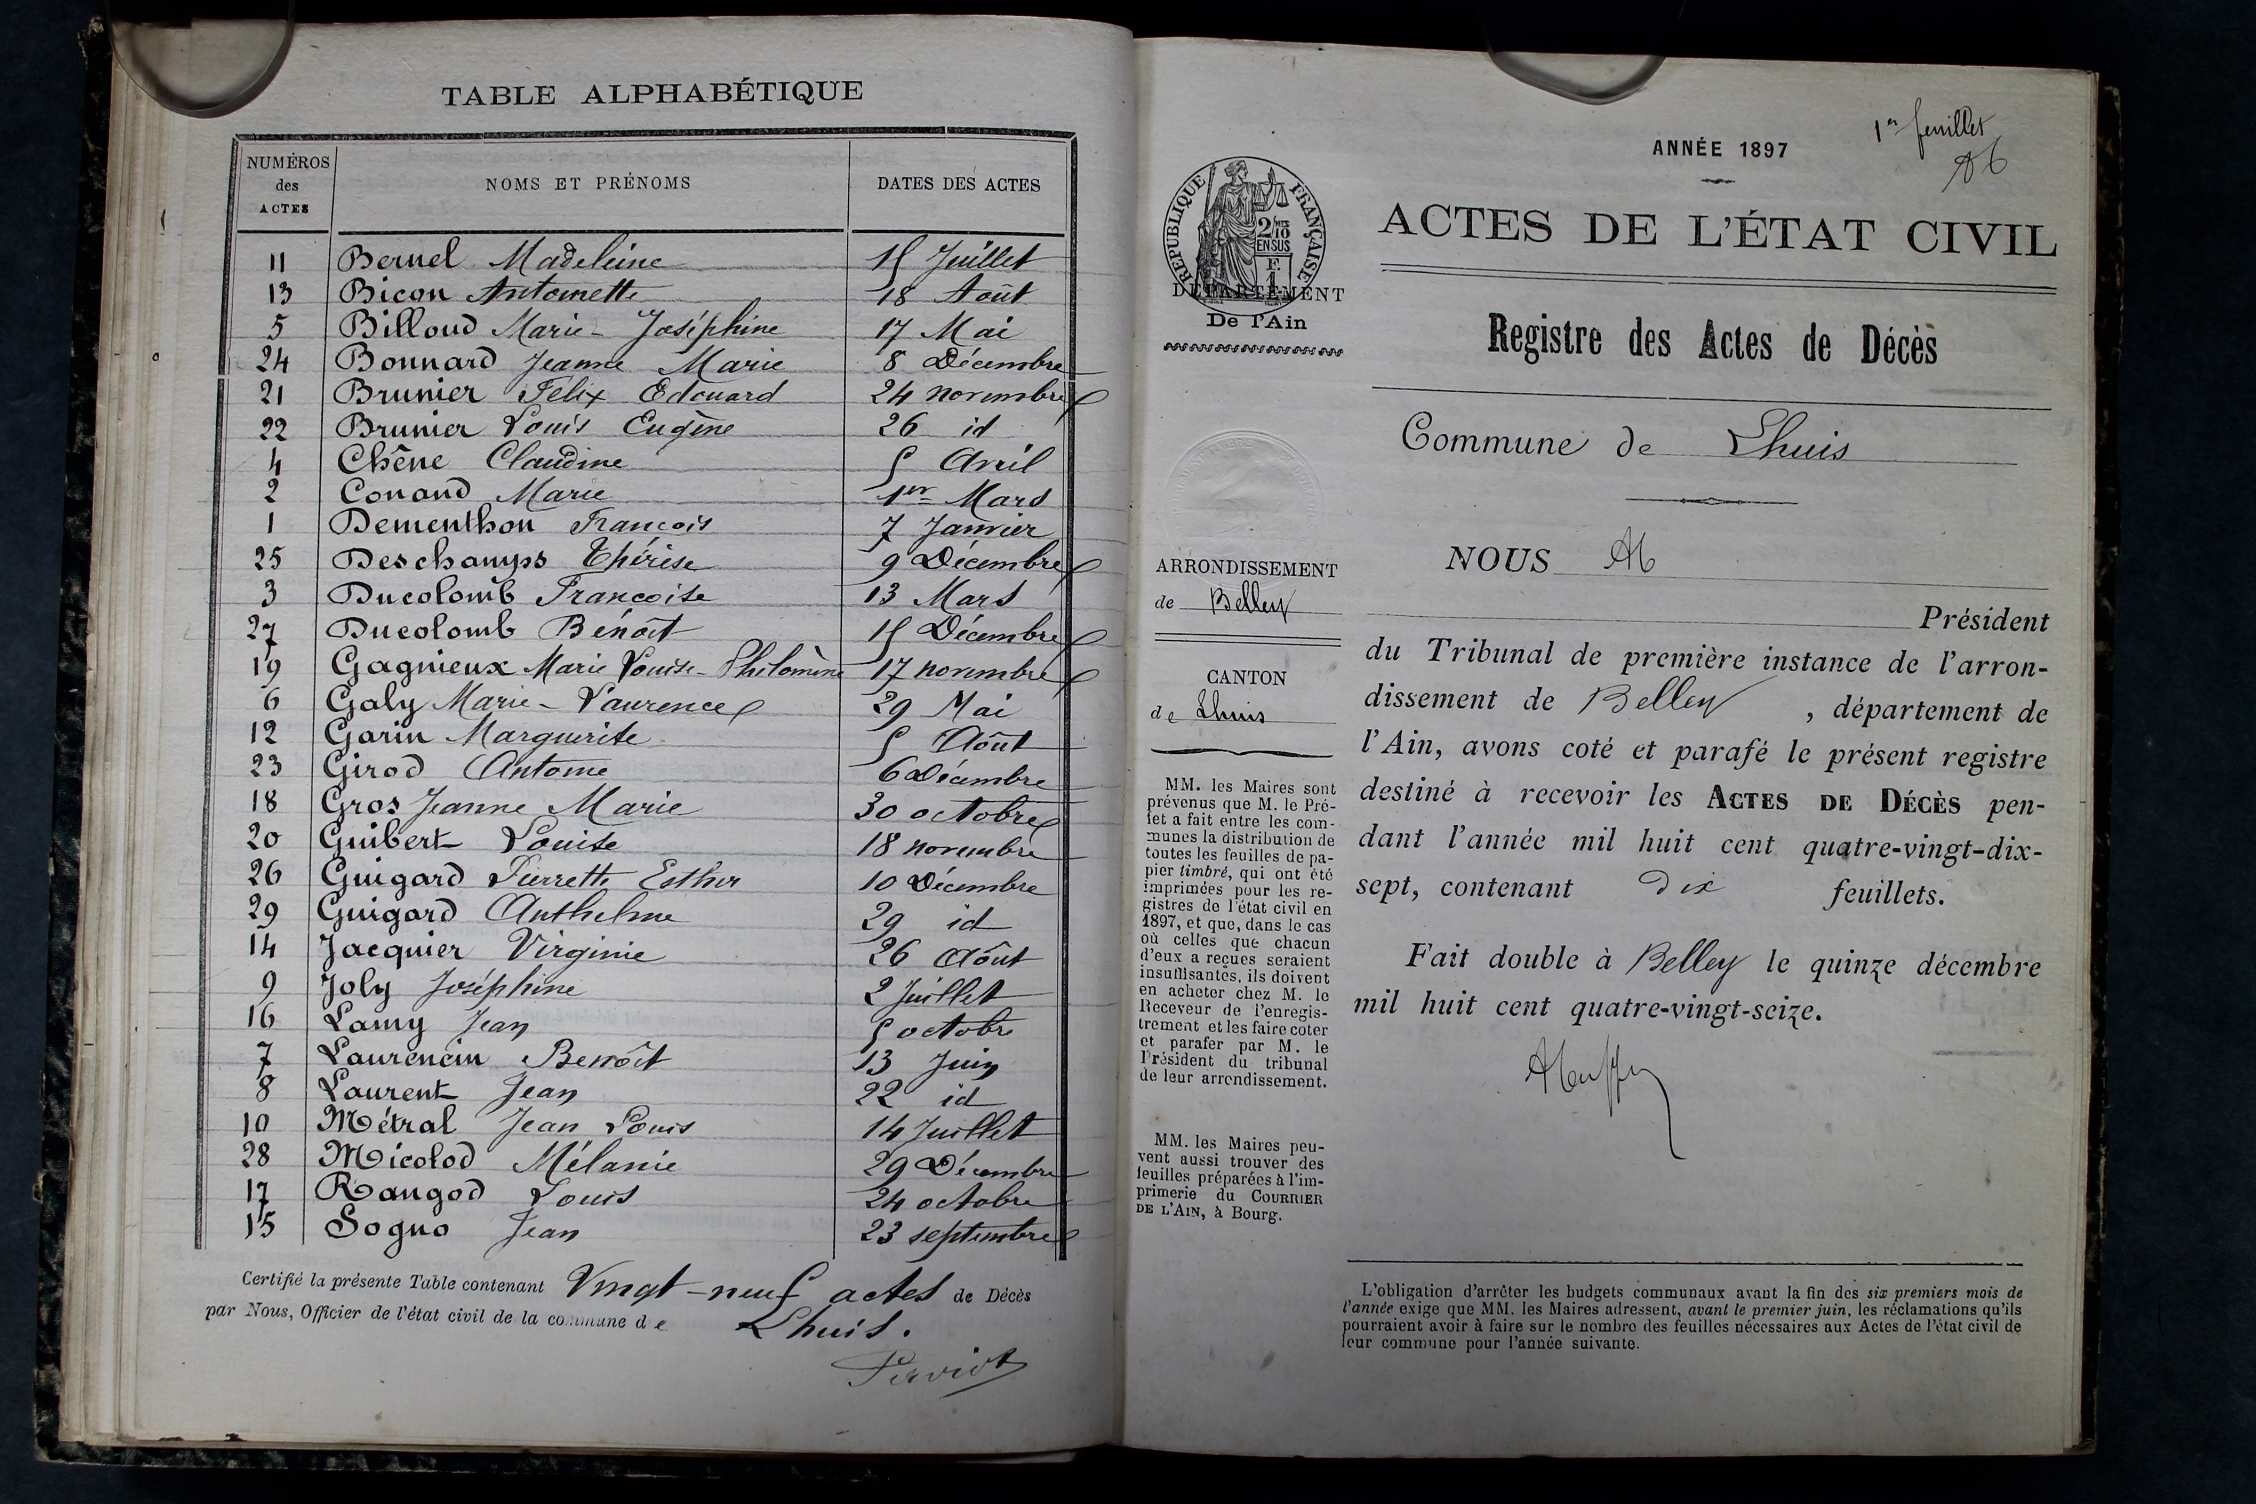 TABLE ALPHABÉTIQUE
NUMÉROS des ACTES NOMS ET PRÉNOMS DATES DES ACTES
11 Bernel Madeleine 15 Juillet
13 Bicon Antoinette 18 Août
5 Billoud Marie-Joséphine 17 Mai
24 Bonnard Jeanne Marie 8 Décembre
21 Brunier Félix Edouard 24 novembre
22 Brunier Louis Eugène 26 id
4 Chêne Claudine 5 Avril
2 Conand Marie 1er Mars
1 Dementhon François 7 Janvier
25 Deschamps Thérèse 9 Décembre
3 Ducolomb Françoise 13 Mars
27 Ducolomb Bénoît 15 Décembre
19 Gagnieux Marie Louise-Philomène 17 novembre
6 Galy Marie-Laurence 29 Mai
12 Garin Marguerite 5 Aôut
23 Girod Antoine 6 Décembre
18 Gros Jeanne Marie 30 octobre
20 Guibert Louise 18 novembre
26 Guigard Pierrette Esther 10 Décembre
29 Guigard Anthelme 29 id
14 Jacquier Virginie 26 Aôut
9 Joly Joséphine 2 Juillet
16 Lamy Jean 5 octobre
7 Laurencin Benoît 13 Juin
8 Laurent Jean 22 id
10 Métral Jean Louis 14 Juillet
28 Micolod Mélanie 29 Décembre
17 Rangod Louis 24 octobre
15 Sogno Jean 23 septembre
Certifié la présente Table contenant Vingt-neuf actes de Décès
par Nous, Officier de l'état civil de la commune de Lhuis.
Perviot
1er feuillet
ANNÉE 1897
RÉPUBLIQUE FRANÇAISE
2/10 EN SUS
F. 1
DÉPARTEMENT
De l'Ain
ACTES DE L'ÉTAT CIVIL
Registre des Actes de Décès
Commune de Lhuis
ARRONDISSEMENT
de Belley
CANTON
de Lhuis
MM. les Maires sont
prévenus que M. le Pré-
fet a fait entre les com-
munes la distribution de
toutes les feuilles de pa-
pier timbré, qui ont été
imprimées pour les re-
gistres de l'état civil en
1897, et que, dans le cas
où celles que chacun
d'eux a reçues seraient
insuffisantes, ils doivent
en acheter chez M. le
Receveur de l'enregis-
trement et les faire coter
et parafer par M. le
Président du tribunal
de leur arrondissement.
MM. les Maires peu-
vent aussi trouver des
feuilles préparées à l'im-
primerie du COURRIER
DE L'AIN, à Bourg.
NOUS
Président
du Tribunal de première instance de l'arron-
dissement de Belley, département de
l'Ain, avons coté et parafé le présent registre
destiné à recevoir les ACTES DE DÉCÈS pen-
dant l'année mil huit cent quatre-vingt-dix-
sept, contenant dix feuillets.
Fait double à Belley le quinze décembre
mil huit cent quatre-vingt-seize.
L'obligation d'arrêter les budgets communaux avant la fin des six premiers mois de
l'année exige que MM. les Maires adressent, avant le premier juin, les réclamations qu'ils
pourraient avoir à faire sur le nombre des feuilles nécessaires aux Actes de l'état civil de
leur commune pour l'année suivante.